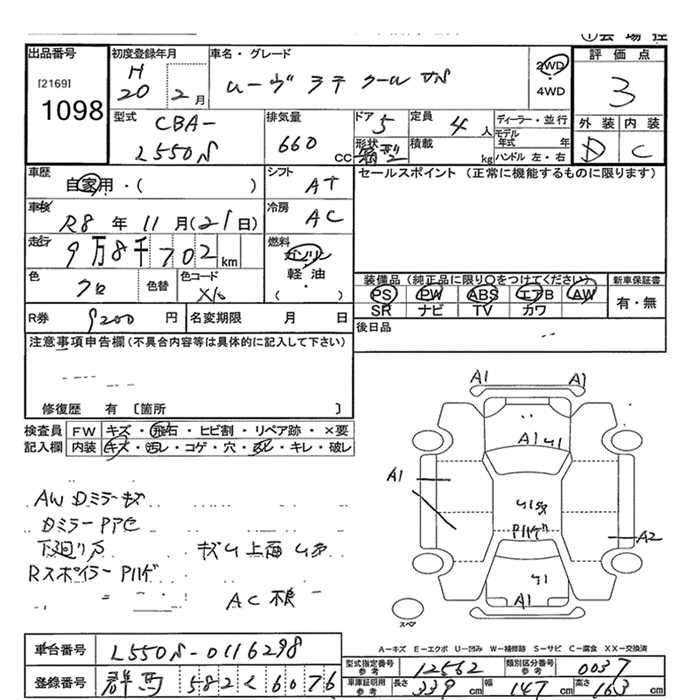 出品番号
[2169]
1098
初度登録年月
H
20 2月
車名・グレード
ムーヴ ラテ クール VS
2WD
4WD
評価点
3
外装 内装
D C
型式
CBA-
L550S
排気量
660 cc
ドア 5
形状
定員 4人
積載 kg
ディーラー・並行
モデル
年式 年
ハンドル 左・右
車歴
自家用・( )
シフト AT
セールスポイント (正常に機能するものに限ります)
車検
R8年11月(21日)
冷房 AC
走行
9万8千702km
燃料
ガソリン
軽・油
( )
色 クロ
色替
色コード
X16
装備品 (純正品に限り○をつけてください)
新車保証書
PS PW ABS エアB AW
SR ナビ TV カワ
有・無
R券 9200円
名変期限 月 日
後日品
注意事項申告欄(不具合内容等は具体的に記入して下さい)
修復歴 有 〔箇所 〕
検査員
記入欄
FW キズ・飛石・ヒビ割・リペア跡・×要
内装 キズ・汚レ・コゲ・穴・スレ・キレ・破レ
AW Dミラーキズ
下廻りサビ
Rスポイラー Pハゲ
A1 A1
A1 U1
A1
Pハゲ
A2
U1
A1
スペア
車台番号 L550S-0116298
登録番号 群馬 582 く 6076
A－キズ E－エクボ U－凹み W－補修跡 S－サビ C－腐食 XX－交換済
型式指定番号
参考
12562
類別区分番号
参考
0037
車庫証明用
参考
長さ 339cm 幅 147cm 高さ 163cm